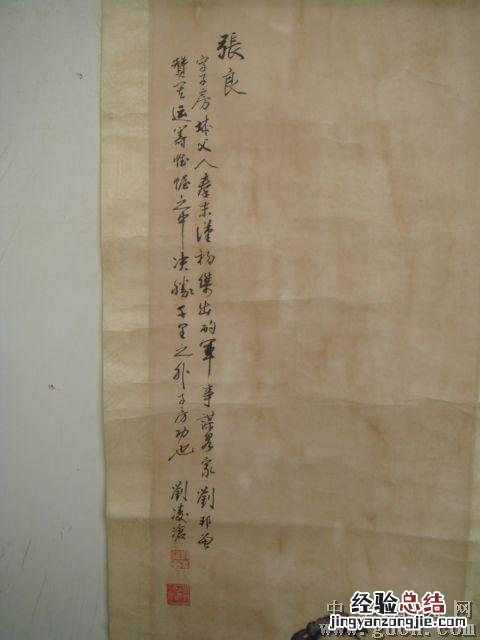 張良
字子房城父人秦末漢初傑出的軍事謀畧家劉邦曾
贊其运筹帷幄之中决勝千里之外子房功也
劉凌滄
经验总结
jingyanzongjie.com
www.guoh.com